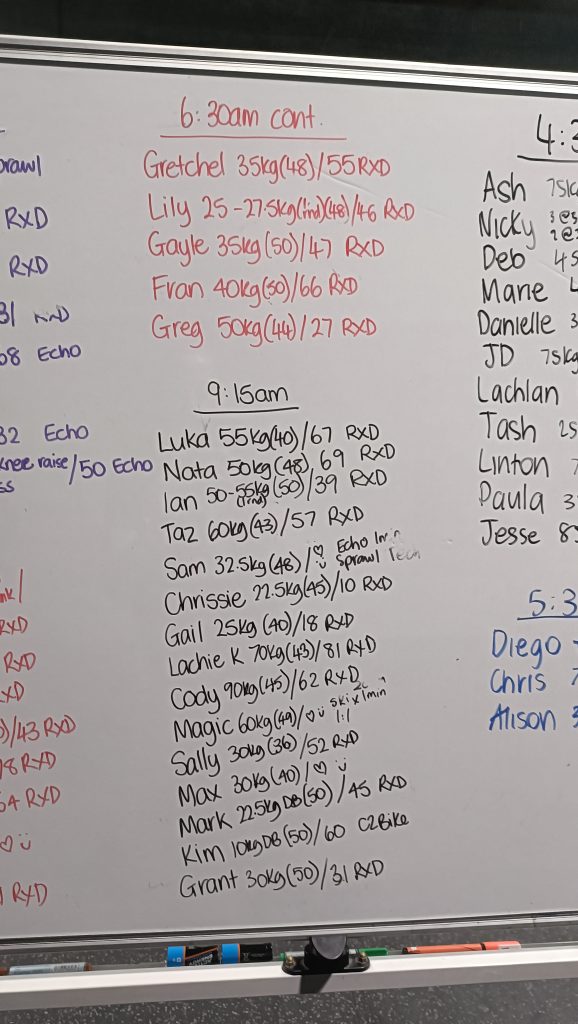 RXD
RXD
31
08 Echo
32 Echo
knee raise/50 Echo
RXD
RXD
RXD
)/43 RXD
RXD
54 RXD
♡ ü
RXD
6:30am cont.
Gretchel 35kg(48)/55 RXD
Lily 25-27.5kg(1rnd)(48)/46 RXD
Gayle 35kg(50)/47 RXD
Fran 40kg(50)/66 RXD
Greg 50kg(44)/27 RXD
9:15am
Luka 55kg(40)/67 RXD
Nata 50kg(48) 69 RXD
Ian 50-55kg(50)/39 RXD
(1rnd)
Taz 60kg(43)/57 RXD
Sam 32.5kg(48)/♡ ü Echo 1min
Sprawl Tech
Chrissie 22.5kg(45)/10 RXD
Gail 25kg(40)/18 RXD
Lachie K 70kg(43)/81 RXD
Cody 90kg(45)/62 RXD
Magic 60kg(49)/♡ ü Ski x 1min
1:1
Sally 30kg(36)/52 RXD
Max 30kg(40)/♡ ü
Mark 22.5kgDB(50)/45 RXD
Kim 10kgDB(50)/60 C2Bike
Grant 30kg(50)/31 RXD
4:3
Ash 75kg
Nicky 3@5
Deb 45
Marie
Danielle 3
JD 75kg
Lachlan
Tash 25
Linton 7
Paula 3
Jesse 8
5:3
Diego
Chris 7
Alison 3